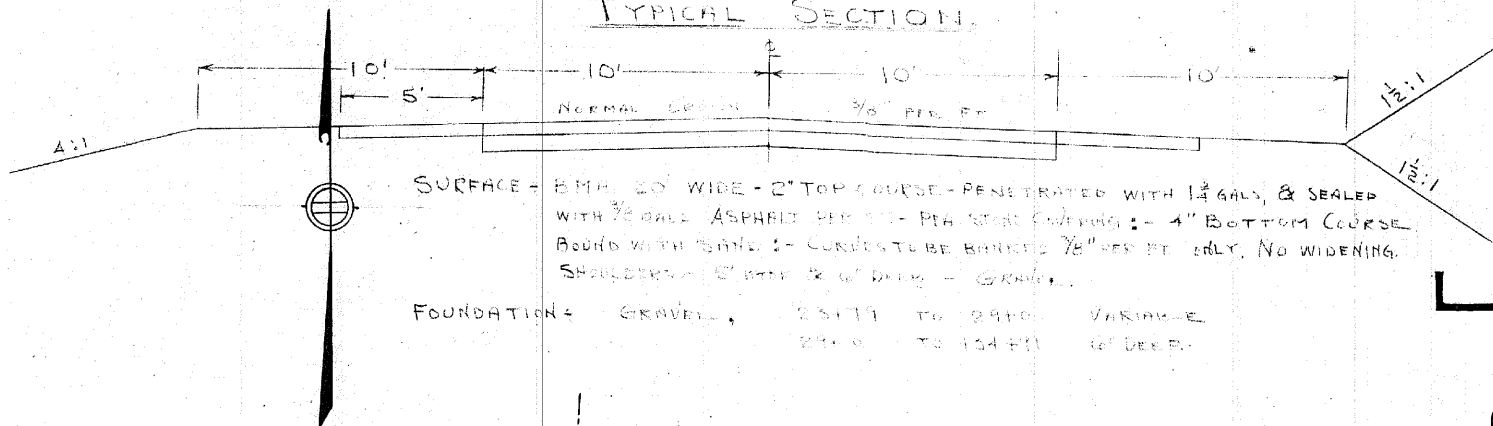 TYPICAL SECTION.
10' 10' 10' 10'
5'
NORMAL CROWN 3/8" PER FT
4:1
1½:1
1½:1
SURFACE - BMA. 20' WIDE - 2" TOP COURSE - PENETRATED WITH 1¾ GALS, & SEALED
WITH ASPHALT PER - PEA STONE COVERING :- 4" BOTTOM COURSE
BOUND WITH SAND :- CURVES TO BE BANKED 7/8" PER FT ONLY, NO WIDENING.
SHOULDERS - 5' - GRAVEL.
FOUNDATION - GRAVEL, 23+79 TO VARIABLE
TO 6" DEEP.